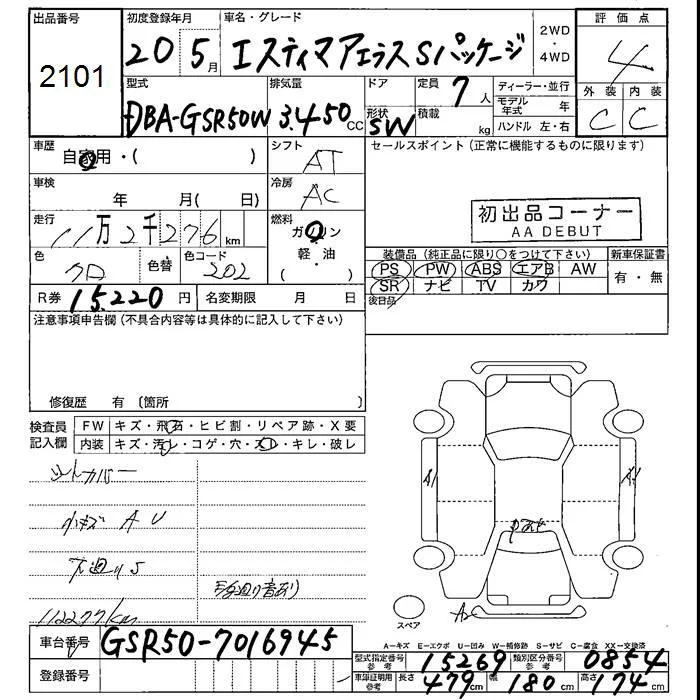 出品番号
2101
初度登録年月
20 5月
車名・グレード
エスティマアエラスSパッケージ
2WD
・
4WD
評価点
4
外装 内装
C C
型式
DBA-GSR50W
排気量
3.450cc
ドア
形状
SW
定員 7人
積載 kg
ディーラー・並行
モデル年式 年
ハンドル 左・右
車歴
自家用・( )
シフト
AT
車検
年 月( 日)
冷房
AC
走行
11万2千276km
燃料
ガソリン
軽・油
( )
色
クロ
色替
色コード
202
R券 15.220円
名変期限 月 日
セールスポイント(正常に機能するものに限ります)
初出品コーナー
AA DEBUT
装備品(純正品に限り○をつけて下さい)
新車保証書
PS PW ABS エアB AW
有・無
SR ナビ TV カワ
後日品
注意事項申告欄(不具合内容等は具体的に記入して下さい)
修復歴 有(箇所 )
検査員
記入欄
FW キズ・飛石・ヒビ割・リペア跡・X要
内装 キズ・汚レ・コゲ・穴・スレ・キレ・破レ
シートカバー
小キズ A U
下廻りS
112277km
A1
A1
A2
スペア
A=キズ E=エクボ U=凹み W=補修跡 S=サビ C=腐食 XX=交換済
車台番号 GSR50-7016945
登録番号
型式指定番号
参考
15269
類別区分番号
参考
0854
車庫証明用
参考
長さ 479cm 幅 180cm 高さ 174cm